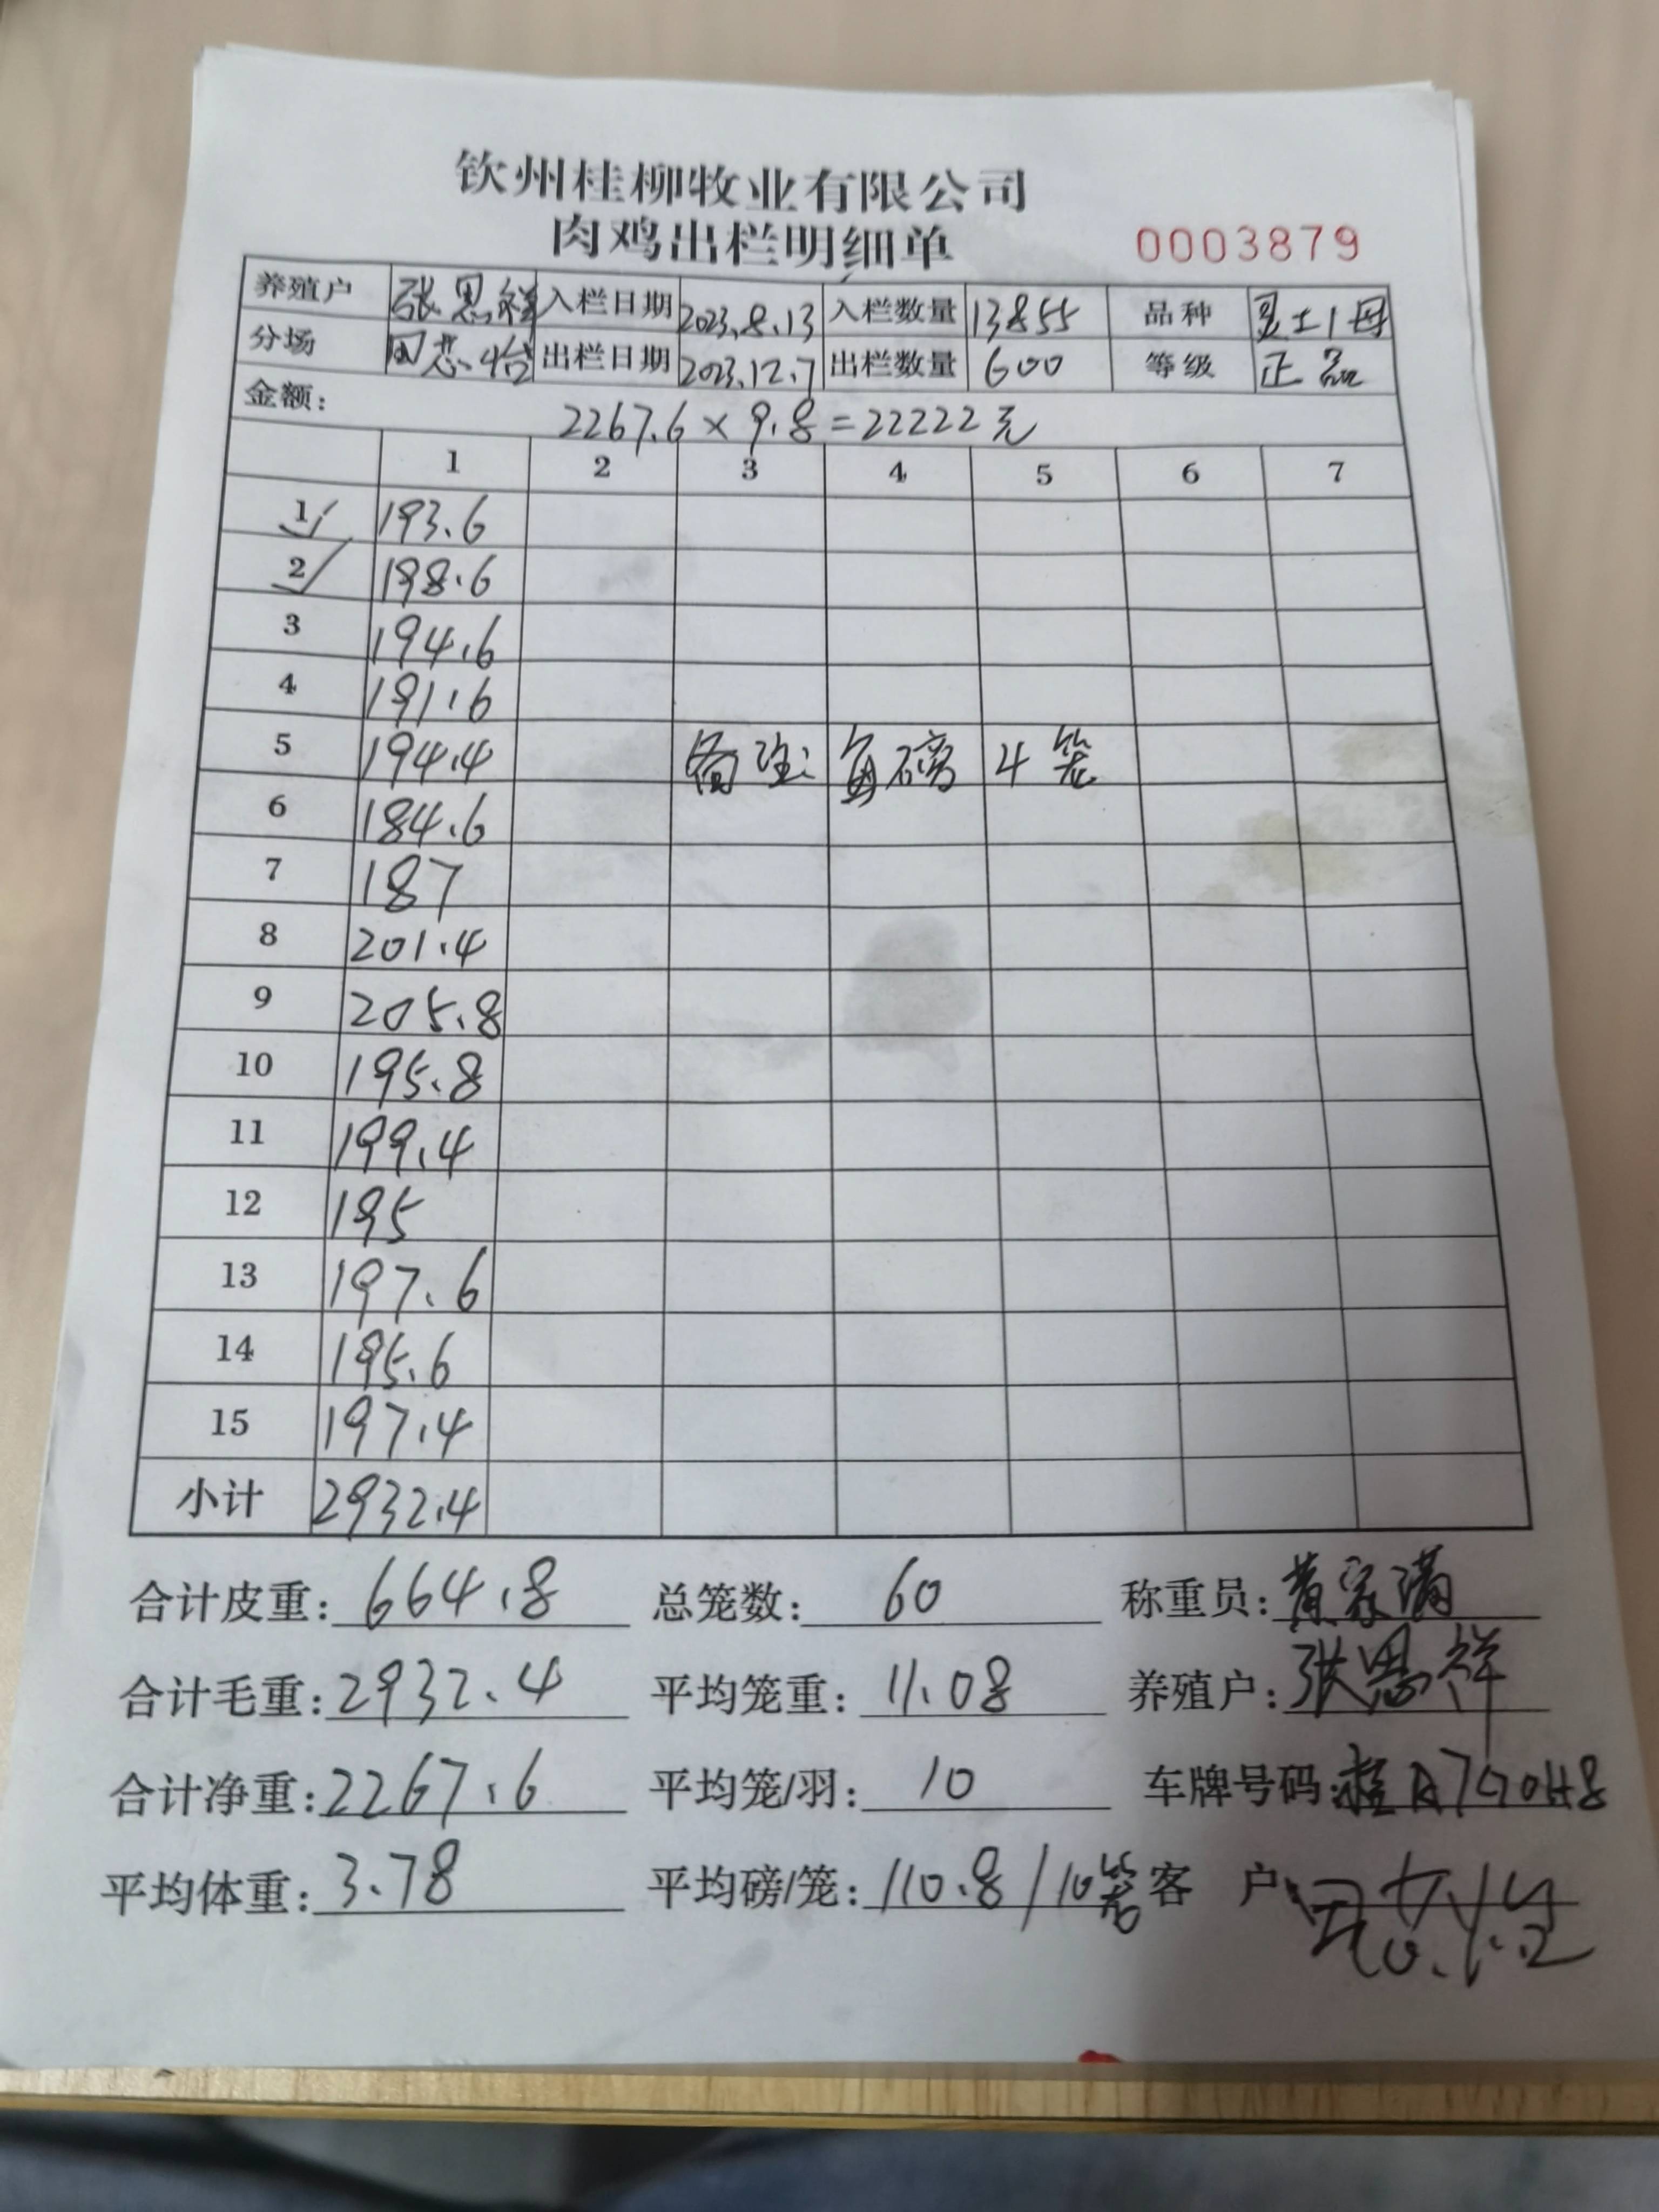 钦州桂柳牧业有限公司
肉鸡出栏明细单 0003879
养殖户 张思祥 入栏日期 2023.8.13 入栏数量 13855 品种 灵土1母
分场 出栏日期 2023.12.7 出栏数量 600 等级 正品
金额: 2267.6 × 9.8 = 22222元
1 2 3 4 5 6 7
1 193.6
2 198.6
3 194.6
4 191.6
5 194.4 备注: 每磅 4笼
6 184.6
7 187
8 201.4
9 205.8
10 195.8
11 199.4
12 195
13 197.6
14 195.6
15 197.4
小计 2932.4
合计皮重: 664.8 总笼数: 60 称重员: 黄家满
合计毛重: 2932.4 平均笼重: 11.08 养殖户: 张思祥
合计净重: 2267.6 平均笼/羽: 10 车牌号码: 桂A7G0H8
平均体重: 3.78 平均磅/笼: 110.8/10笼 客 户: